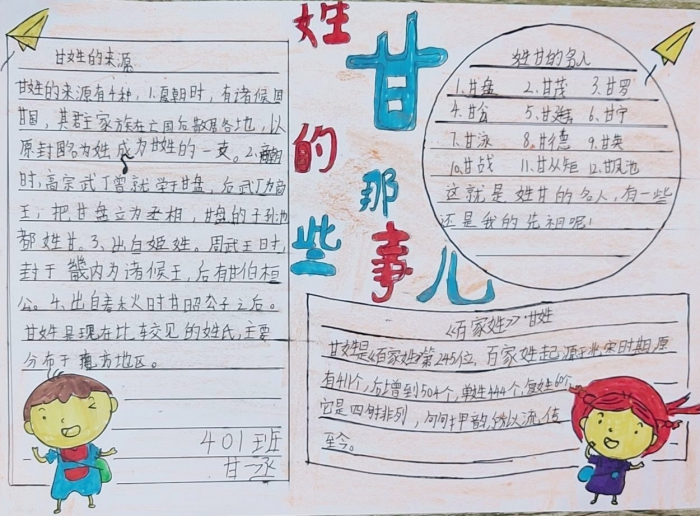 姓甘的那些事儿
甘姓的来源
甘姓的来源有4种，1.夏朝时，有诸侯国
甘国，其君主家族在亡国后散居各地，以
原封路为姓，成为甘姓的一支。2.商朝
时，高宗武丁曾就学于甘盘，后武丁为商
王，把甘盘立为丞相，甘盘的子孙也
都姓甘。3、出自姬姓。周武王时，
封于畿内为诸候王，后有甘伯桓
公。4、出自春秋时甘昭公子之后。
甘姓是现在比较见的姓氏，主要
分布于南方地区。
401班
甘丞
姓甘的名人
1.甘盘 2.甘茂 3.甘罗
4.甘公 5.甘延寿 6.甘宁
7.甘泳 8.甘德 9.甘英
10.甘战 11.甘从矩 12.甘凤池
这就是姓甘的名人，有一些
还是我的先祖呢！
《百家姓》甘姓
甘姓是《百家姓》第245位，百家姓起源于北宋时期，原
有411个，后增到504个，单姓444个，复姓60个
它是四句排列，句句押韵，得以流传
至今。